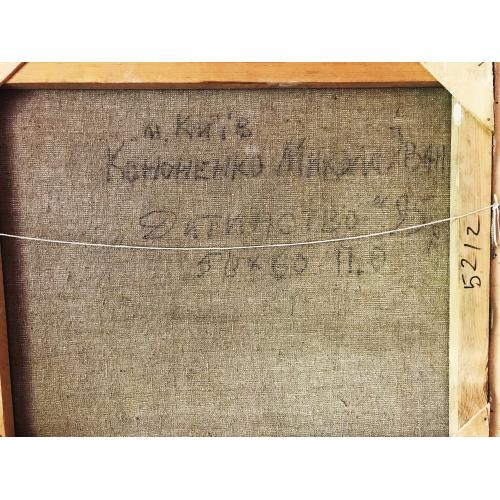 м. Київ
Кононенко Микола Іван
„Дитинство“ 95
50×60 П.О
5212